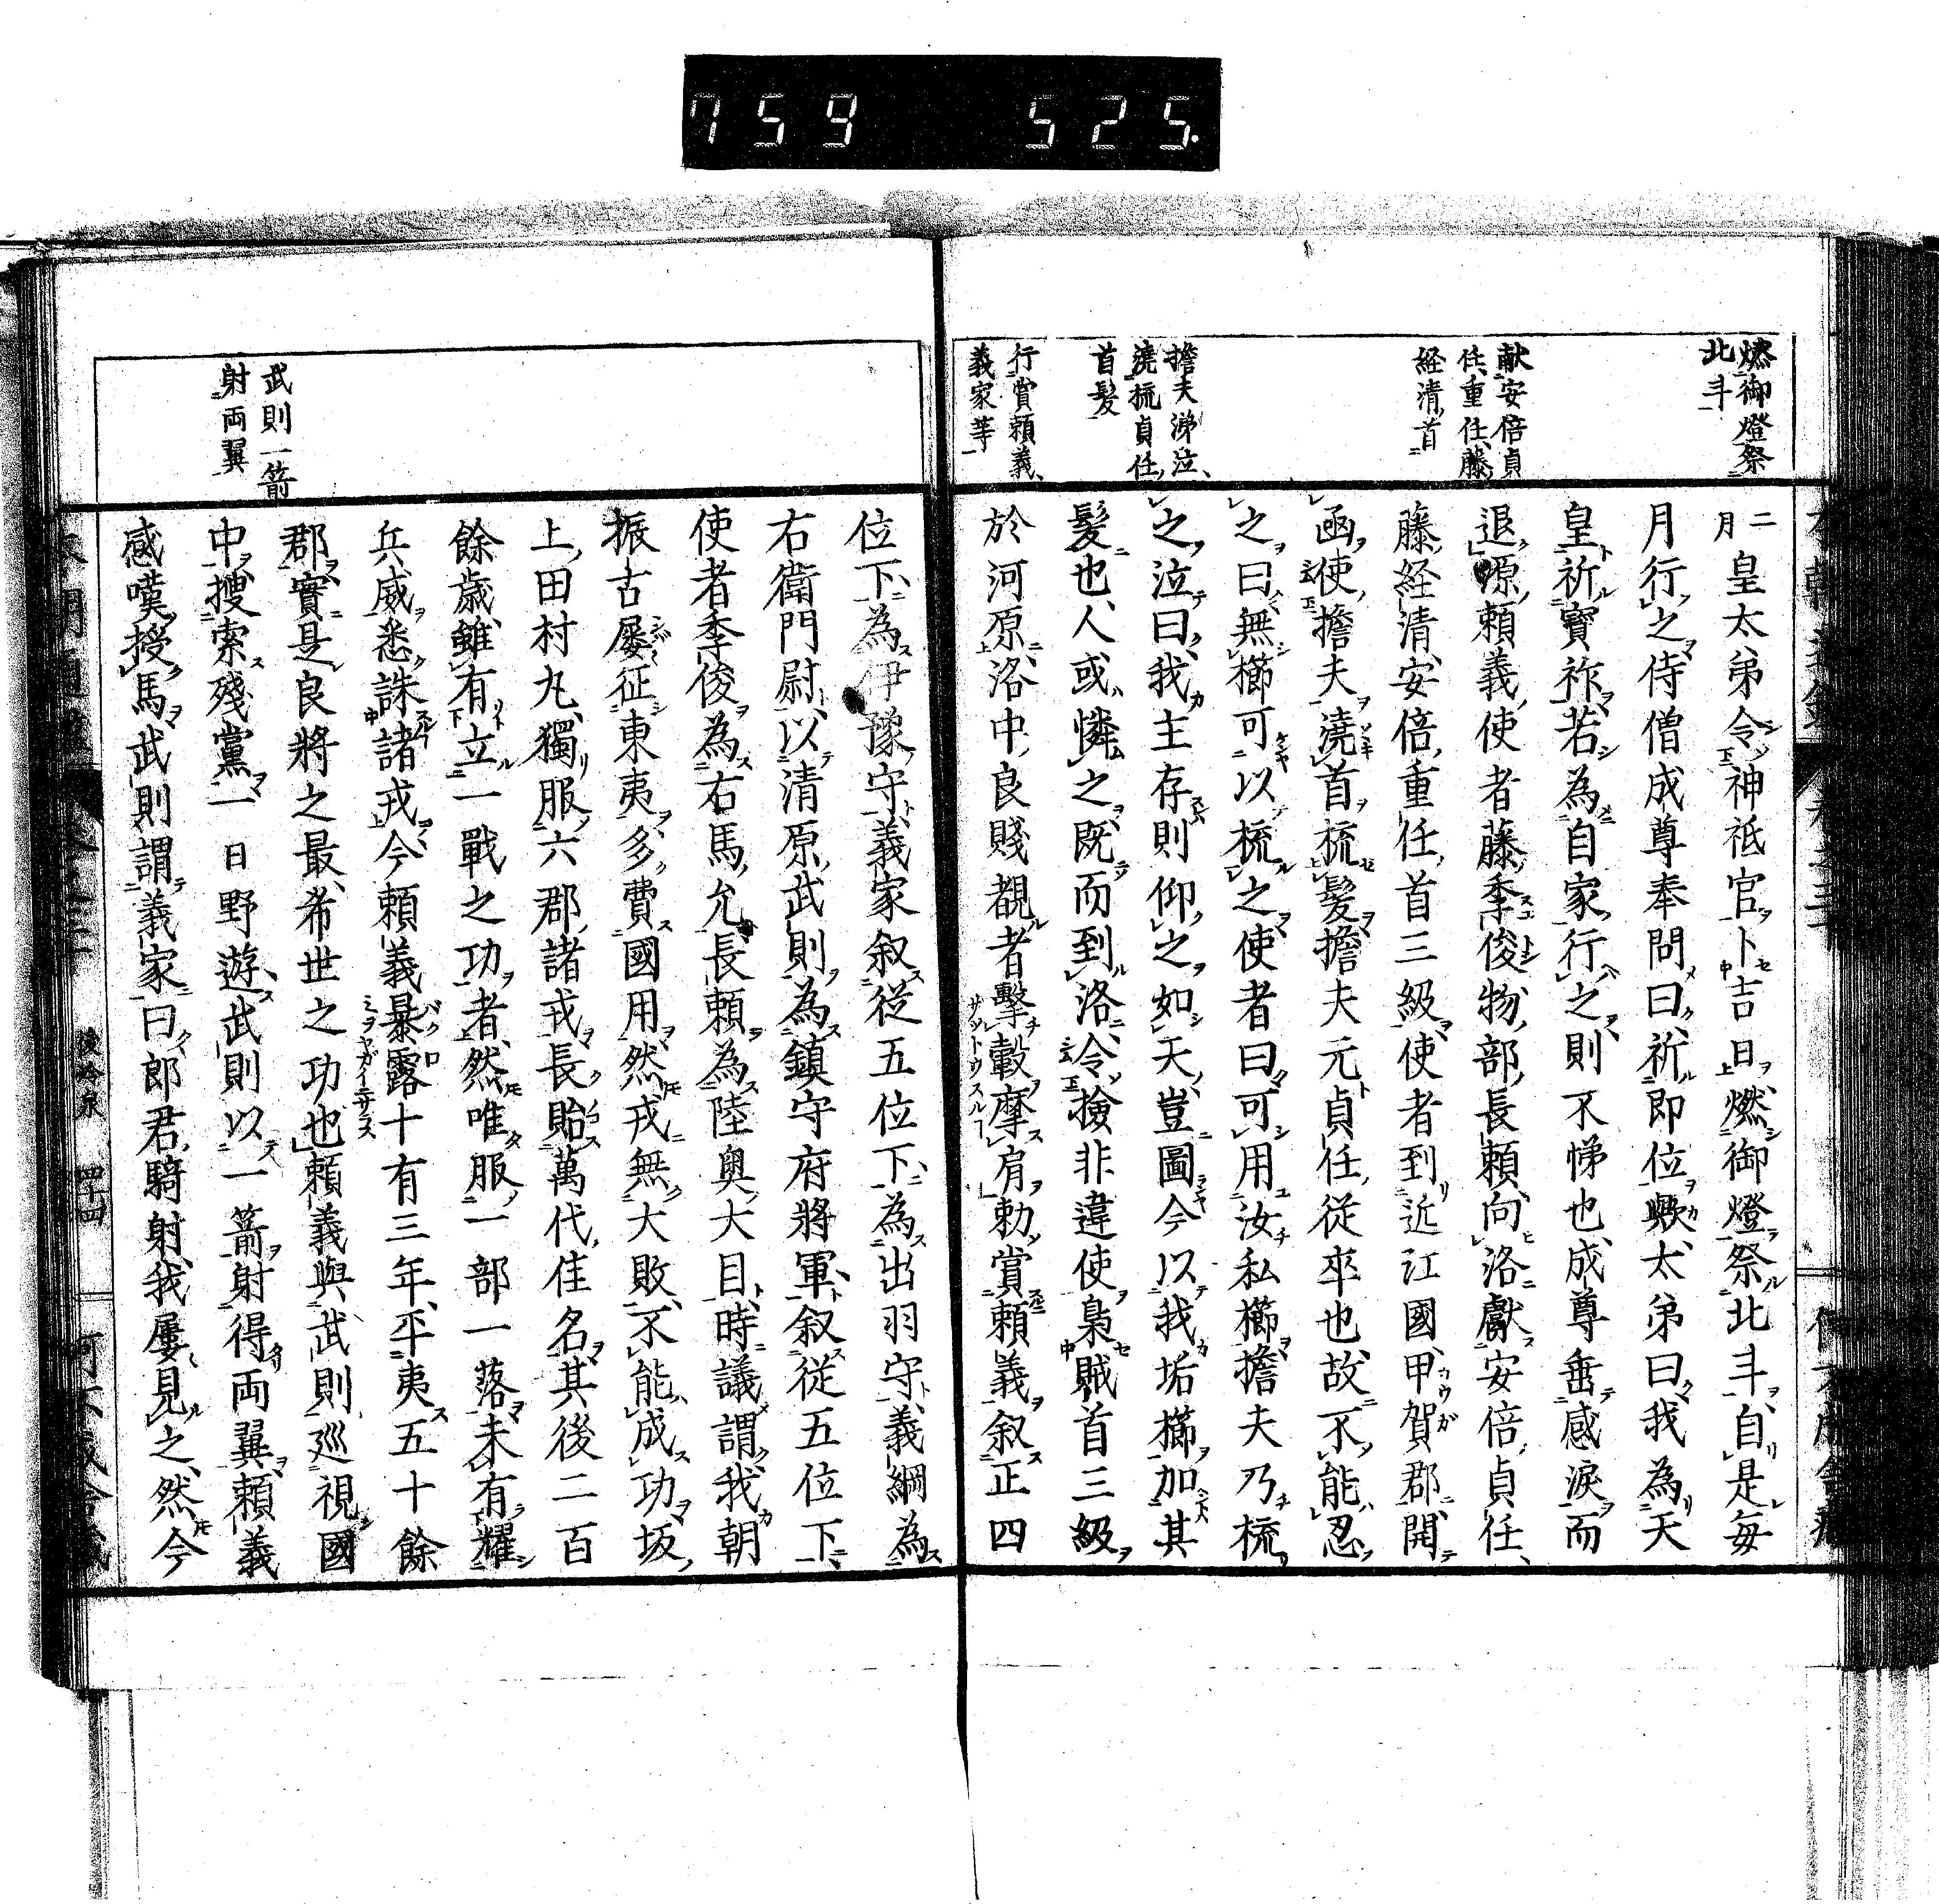 759 525.
燃御燈祭
北斗
献安倍貞
任、重任、藤
経清、首
擔夫涕泣、
澆梳貞任、
首髮
行賞頼義、
義家等
二月皇太弟令神祇官卜吉日燃御燈祭北斗自是毎
月行之侍僧成尊奉問曰祈即位歟太弟曰我為天
皇祈寳祚若為自家行之則不悌也成尊垂感涙而
退源頼義使者藤季俊物部長頼向洛獻安倍貞任、
藤経清、安倍重任首三級使者到近江國甲賀郡開
函使擔夫澆首梳髮擔夫元貞任従卒也故不能忍
之曰無櫛可以梳之使者曰可用汝私櫛擔夫乃梳
之泣曰我主存則仰之如天豈圖今以我垢櫛加其
髮也人或憐之既而到洛令撿非違使梟賊首三級
於河原洛中良賤覩者擊轂摩肩勅賞頼義叙正四
位下為伊豫守義家叙従五位下為出羽守義綱為
右衛門尉以清原武則為鎮守府將軍叙従五位下
使者季俊為右馬允長頼為陸奥大目時議謂我朝
振古屡征東夷多費國用然戎無大敗不能成功坂
上田村丸獨服六郡諸戎長貽萬代佳名其後二百
餘歳雖有立一戰之功者然唯服一部一落未有耀
兵威悉誅諸戎今頼義暴露十有三年平夷五十餘
郡實是良將之最希世之功也頼義與武則巡視國
中搜索殘黨一日野遊武則以一箭射得両翼頼義
感嘆授馬武則謂義家曰郎君騎射我屡見之然今
武則一箭
射両翼
後冷泉 四十四